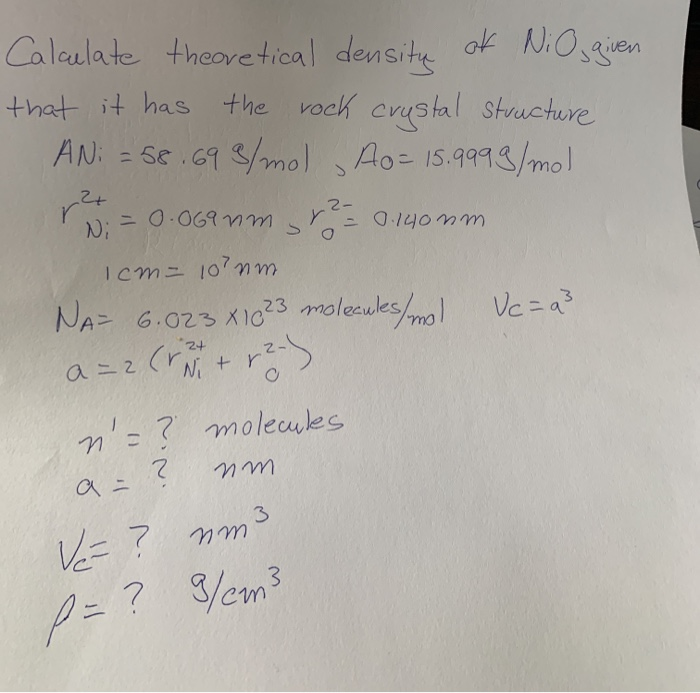 Calculate theoretical density of NiO, given
that it has the rock crystal structure
ANi = 58.69 g/mol, AO = 15.999 g/mol
r²⁺Ni = 0.069 nm, r²⁻O = 0.140 nm
1 cm = 10⁷ nm
NA = 6.023 × 10²³ molecules/mol Vc = a³
a = 2 (r²⁺Ni + r²⁻O)
n' = ? molecules
a = ? nm
Vc = ? nm³
ρ = ? g/cm³